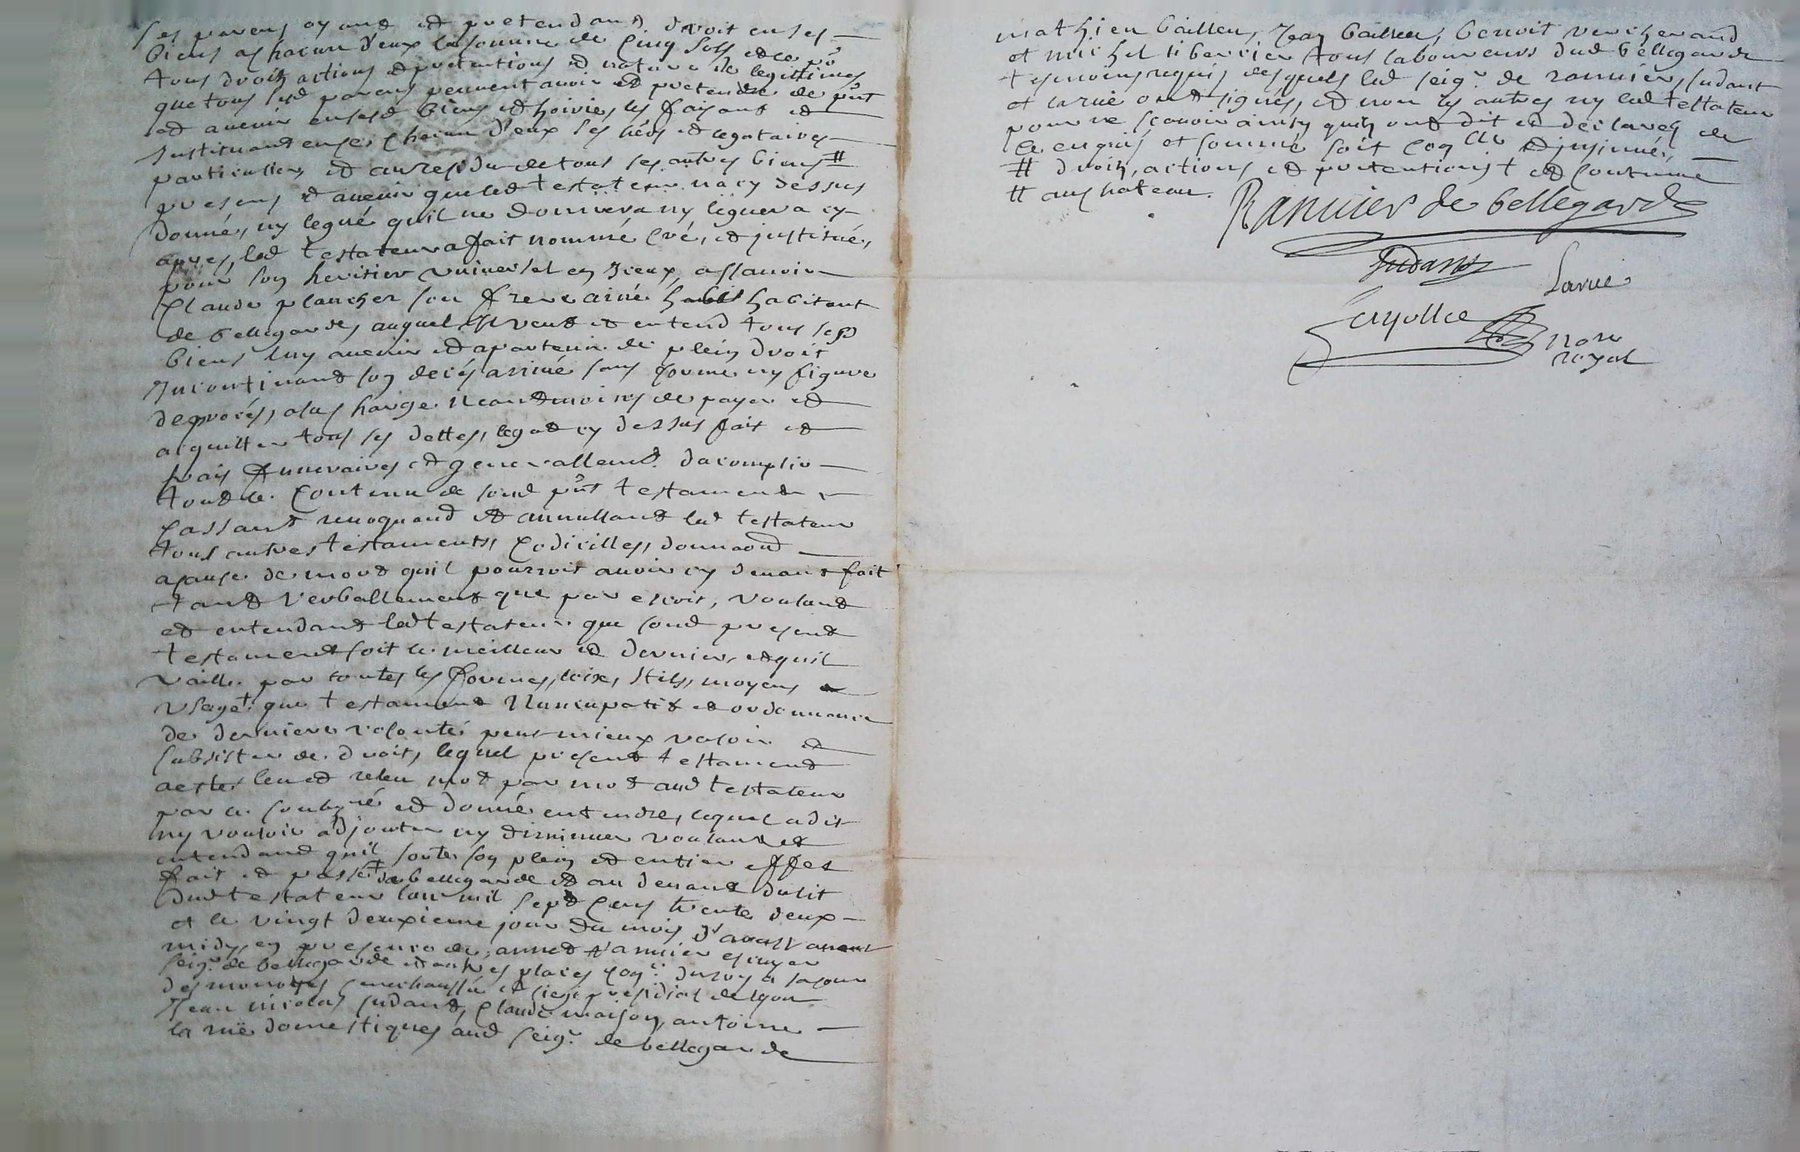 ses parens ayans et pretendans droit en ses
biens a chacun d'eux la somme de cinq sols et ce po^r
tous droits actions et pretentions et nature de legitimes
que tous sesd parens peuvent avoir et pretendre de p^nt
et avenir en sesd biens et hoiries, les faisant et
instituand chacun d'eux ses heritiers et legataires
particuliers et au residu de tous ses autres biens #
presens et avenir que led testateur na cy dessus
donné, ny legué quil ne donnera ny leguera cy
apres, led testateur a fait nommé créé, et institué,
pour son heritier universel en iceux, assavoir
Claude plancher son frere ainé habitant
de bellegarde, auquel il veut et entend tous sesd
biens luy avenir et apartenir de plein droit
Incontinand son decés arrivé sans forme ny figure
de procés, a la charge neantmoins de payer et
acquitter tous ses dettes, legat cy dessus fait et
frais funeraires et generallem^t. dacomplir
tout le contenu de soud p^nt testament
Cassant revoquand et annulland led testateur
tous autres testaments, codicilles, donnaõn
a cause de mort quil pourroit avoir cy devant fait
tant verballement que par escrit, voulant
et entendant led testateur que soud present
testament soit le meilleur et dernier, et quil
vaille par toutes les formes, loix, stils, moyens
usage que testament Nuncupatif et ordonnance
de derniere volonté peut mieux valoir et
subsister de droit, lequel present testament
a esté leu et releu mot par mot aud testateur
par le soubz^né et donné entendre, lequel a dit
ny vouloir adjouter ny diminuer voulant et
entendand quil sorte son plein et entier effet
fait et passé + de bellegarde et au devant du lit
dud testateur lan mil sept cens trente deux
et le vingt deuxieme jour du mois d'avant
midy, en presence de, annet ranvier escuyer
seig^r. de bellegarde et autres places con^er. du roy a la cour
des monoyes senechaussée et siege presidial de lyon
Jean nicolas Judant, Claude maison, antoine
la rue domestiques aud seig^r. de bellegarde
mathieu bailleu, Jean bailleu, benoit vercherand
et michel tibercier tous laboureurs dud bellegarde
tesmoins requis desquels led seig^r. de ranvier, Judant
et larue ont signes, et non les autres ny led testateur
pour ne scavoir ainsy quils ont dit et declarés de
ce enquis et sommé soit con^llé et insinué,
# droits, actions et pretentions + et coutume
# au chateau.
Ranvier de bellegarde
Judant
Larue
nore
royal